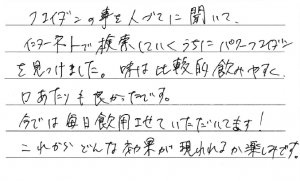 フコイダンの事を人づてに聞いて、
インターネットで検索していくうちにパワーフコイダン
を見つけました。味は比較的飲みやすく、
口あたりも良かったです。
今では毎日飲用させていただいてます!
これからどんな効果が現れるか楽しみです。